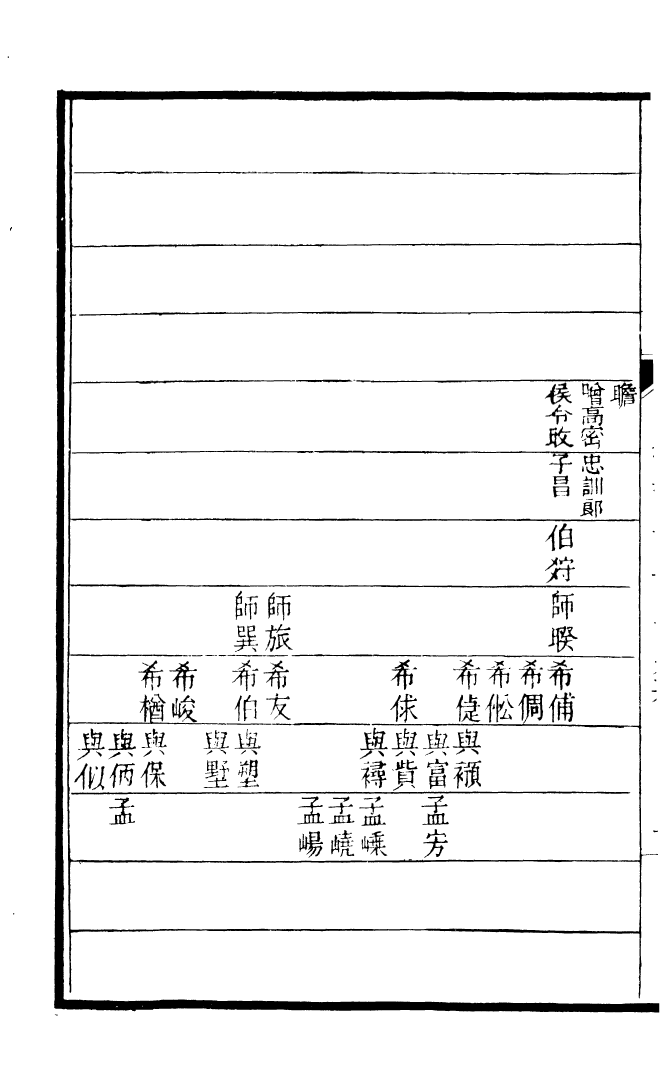 瞻
贈高密 忠訓郎
侯令攺 子昌 伯狩 師暌 希俌
希倜
希倯
希偼 與
與富 孟
希俅 與貲
與 孟嵊
孟嶢
孟崵
師旅 希友
師巽 希伯 與塑
與墅
希峻
希楢 與保
與 孟
與似